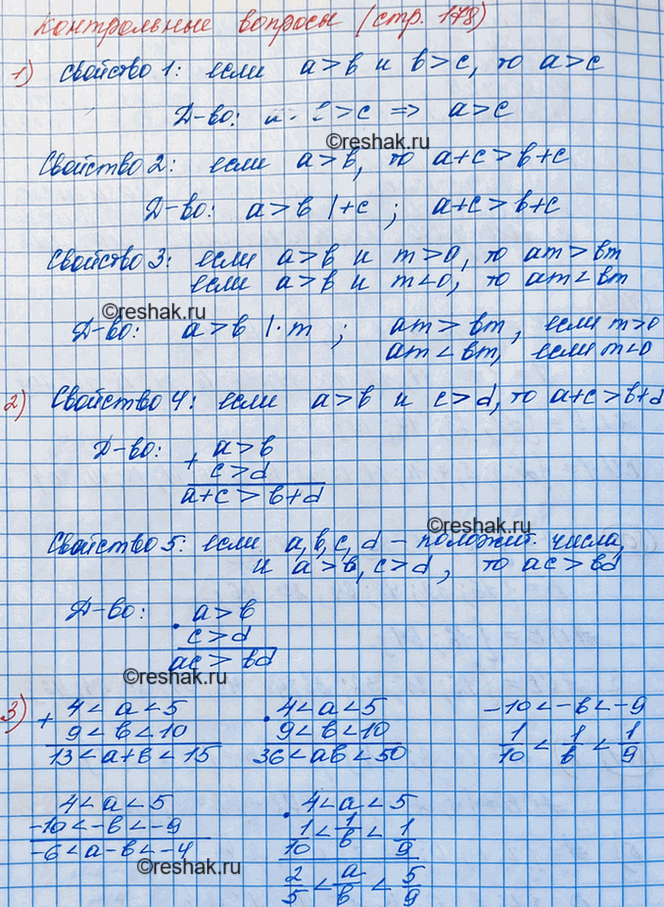 Контрольные вопросы (стр. 178)
1) Свойство 1: если a>b и b>c, то a>c
Д-во: b>c => a>c
©reshak.ru
Свойство 2: если a>b, то a+c>b+c
Д-во: a>b |+c ; a+c>b+c
Свойство 3: если a>b и m>0, то am>bm
если a>b и m<0, то am<bm
©reshak.ru
Д-во: a>b |·m ; am>bm, если m>0
am<bm, если m<0
2) Свойство 4: если a>b и c>d, то a+c>b+d
Д-во: a>b
+ c>d
a+c>b+d
©reshak.ru
Свойство 5: если a,b,c,d – положит. числа,
и a>b, c>d, то ac>bd
Д-во: a>b
· c>d
ac>bd
©reshak.ru
3) + 4<a<5 · 4<a<5 -10<-b<-9
9<b<10 9<b<10 1/10<1/b<1/9
13<a+b<15 36<ab<50
4<a<5 · 4<a<5
-10<-b<-9 1/10<1/b<1/9
-6<a-b<-4 2/5<a/b<5/9
©reshak.ru
©reshak.ru